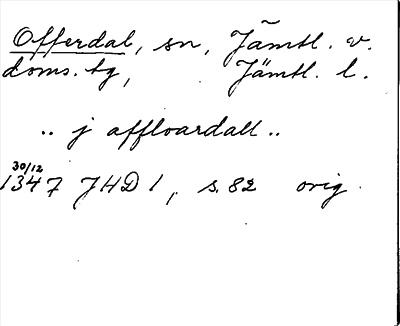 Offerdal, sn, Jämtl. v.
doms. tg, Jämtl. l.
.. j affloardall ..
30/12
1347 JHD 1, s. 82 orig